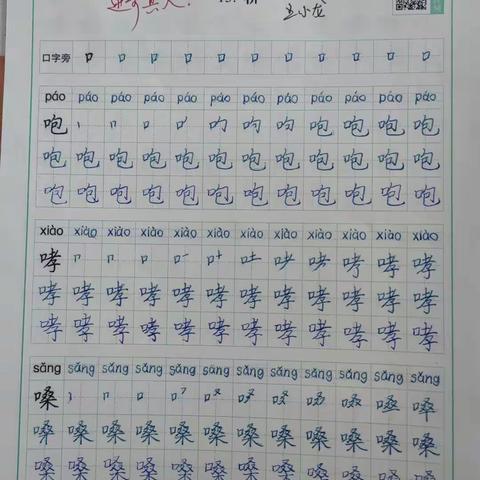 口字旁 口 口 口 口 口 口 口 口 口 口 口
páo páo páo páo páo páo páo páo páo páo páo páo
咆 口 咆 咆 咆
咆 咆 咆 咆 咆 咆 咆 咆 咆 咆 咆 咆
咆 咆 咆 咆 咆 咆 咆 咆 咆 咆 咆 咆
xiào xiào xiào xiào xiào xiào xiào xiào xiào xiào xiào xiào
哮 口 叶 吐 哮 哮
哮 哮 哮 哮 哮 哮 哮 哮 哮 哮 哮 哮
哮 哮 哮 哮 哮 哮 哮 哮 哮 哮 哮 哮
sǎng sǎng sǎng sǎng sǎng sǎng sǎng sǎng sǎng sǎng sǎng sǎng
嗓 口
嗓 嗓 嗓 嗓 嗓 嗓 嗓 嗓 嗓 嗓 嗓 嗓
嗓 嗓 嗓 嗓 嗓 嗓 嗓 嗓 嗓 嗓 嗓 嗓